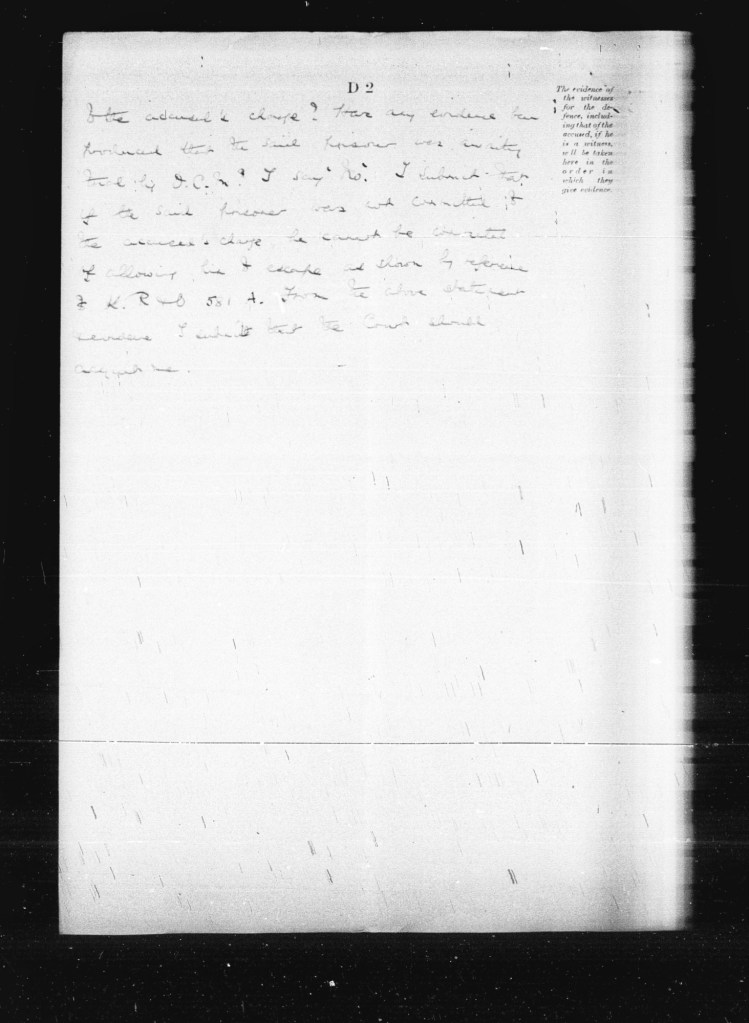 D 2
The evidence of
the witnesses
for the de-
fence, includ-
ing that of the
accused, if he
is a witness,
will be taken
here in the
order in
which they
give evidence.
to the accused's charge? Has any evidence been
produced that the said prisoner was awaiting
trial by D.C.M? I say "No". I submit that
if the said prisoner was not committed to
the accused's charge he cannot be convicted
of allowing him to escape as shown by reference
to K. R & O 581 A. From the above statement
I submit that the Court should
acquit me.